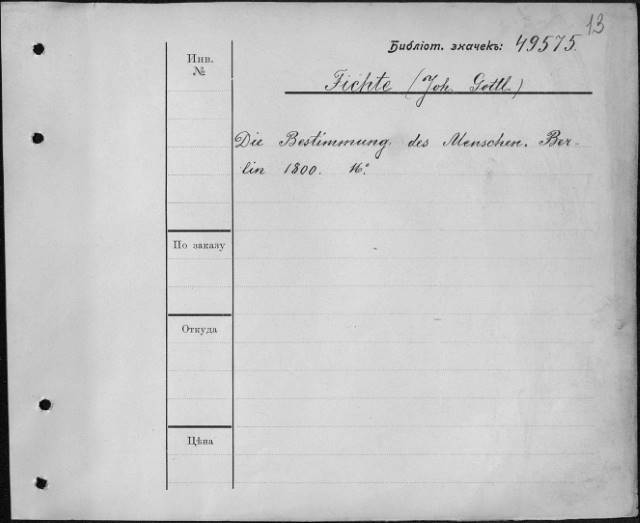 13
Библіот. значекъ: 49575.
Инв.
№
Fichte (Joh. Gottl.)
Die Bestimmung des Menschen. Ber-
lin 1800. 16°
По заказу
Откуда
Цѣна